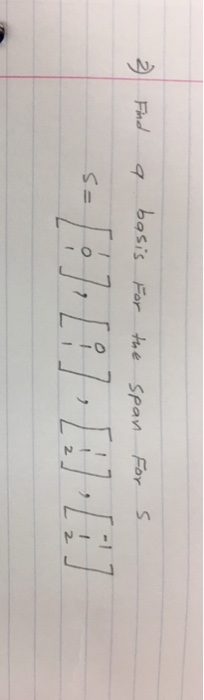 2) Find a basis For the span For S
S = [1 0 1], [0 1 1], [1 1 2], [-1 1 2]